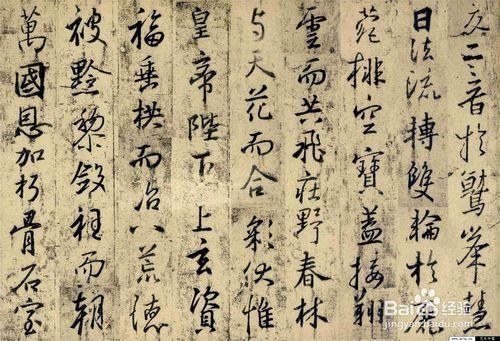 二音於鷲峯慧
日法流轉雙輪於鹿
菀排空寶蓋接翔
雲而共飛莊野春林
与天花而合彩伏惟
皇帝陛下上玄資
福垂拱而治八荒德
被黔黎斂衽而朝
萬國恩加朽骨石室
Baidu 经验
jingyan.baidu.com